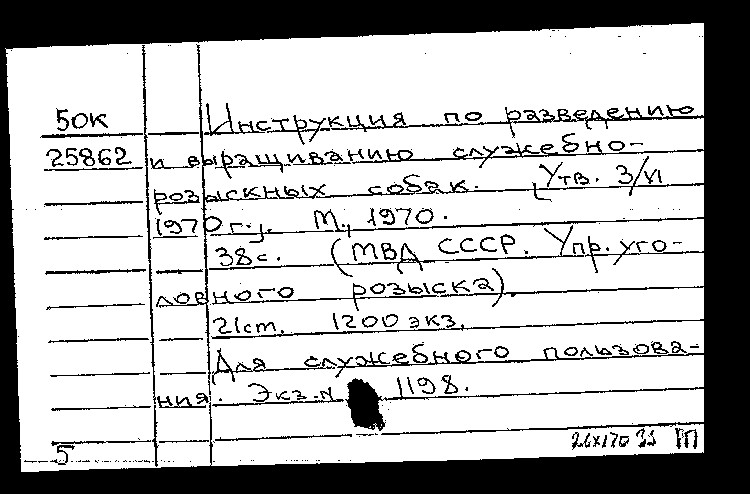 50К Инструкция по разведению
25862 и выращиванию служебно-
розыскных собак. [Утв. 3/VI
1970 г.]. М., 1970.
38с. (МВД СССР. Упр. уго-
ловного розыска).
21см. 1200 экз.
Для служебного пользова-
ния. Экз. № 1198.
5